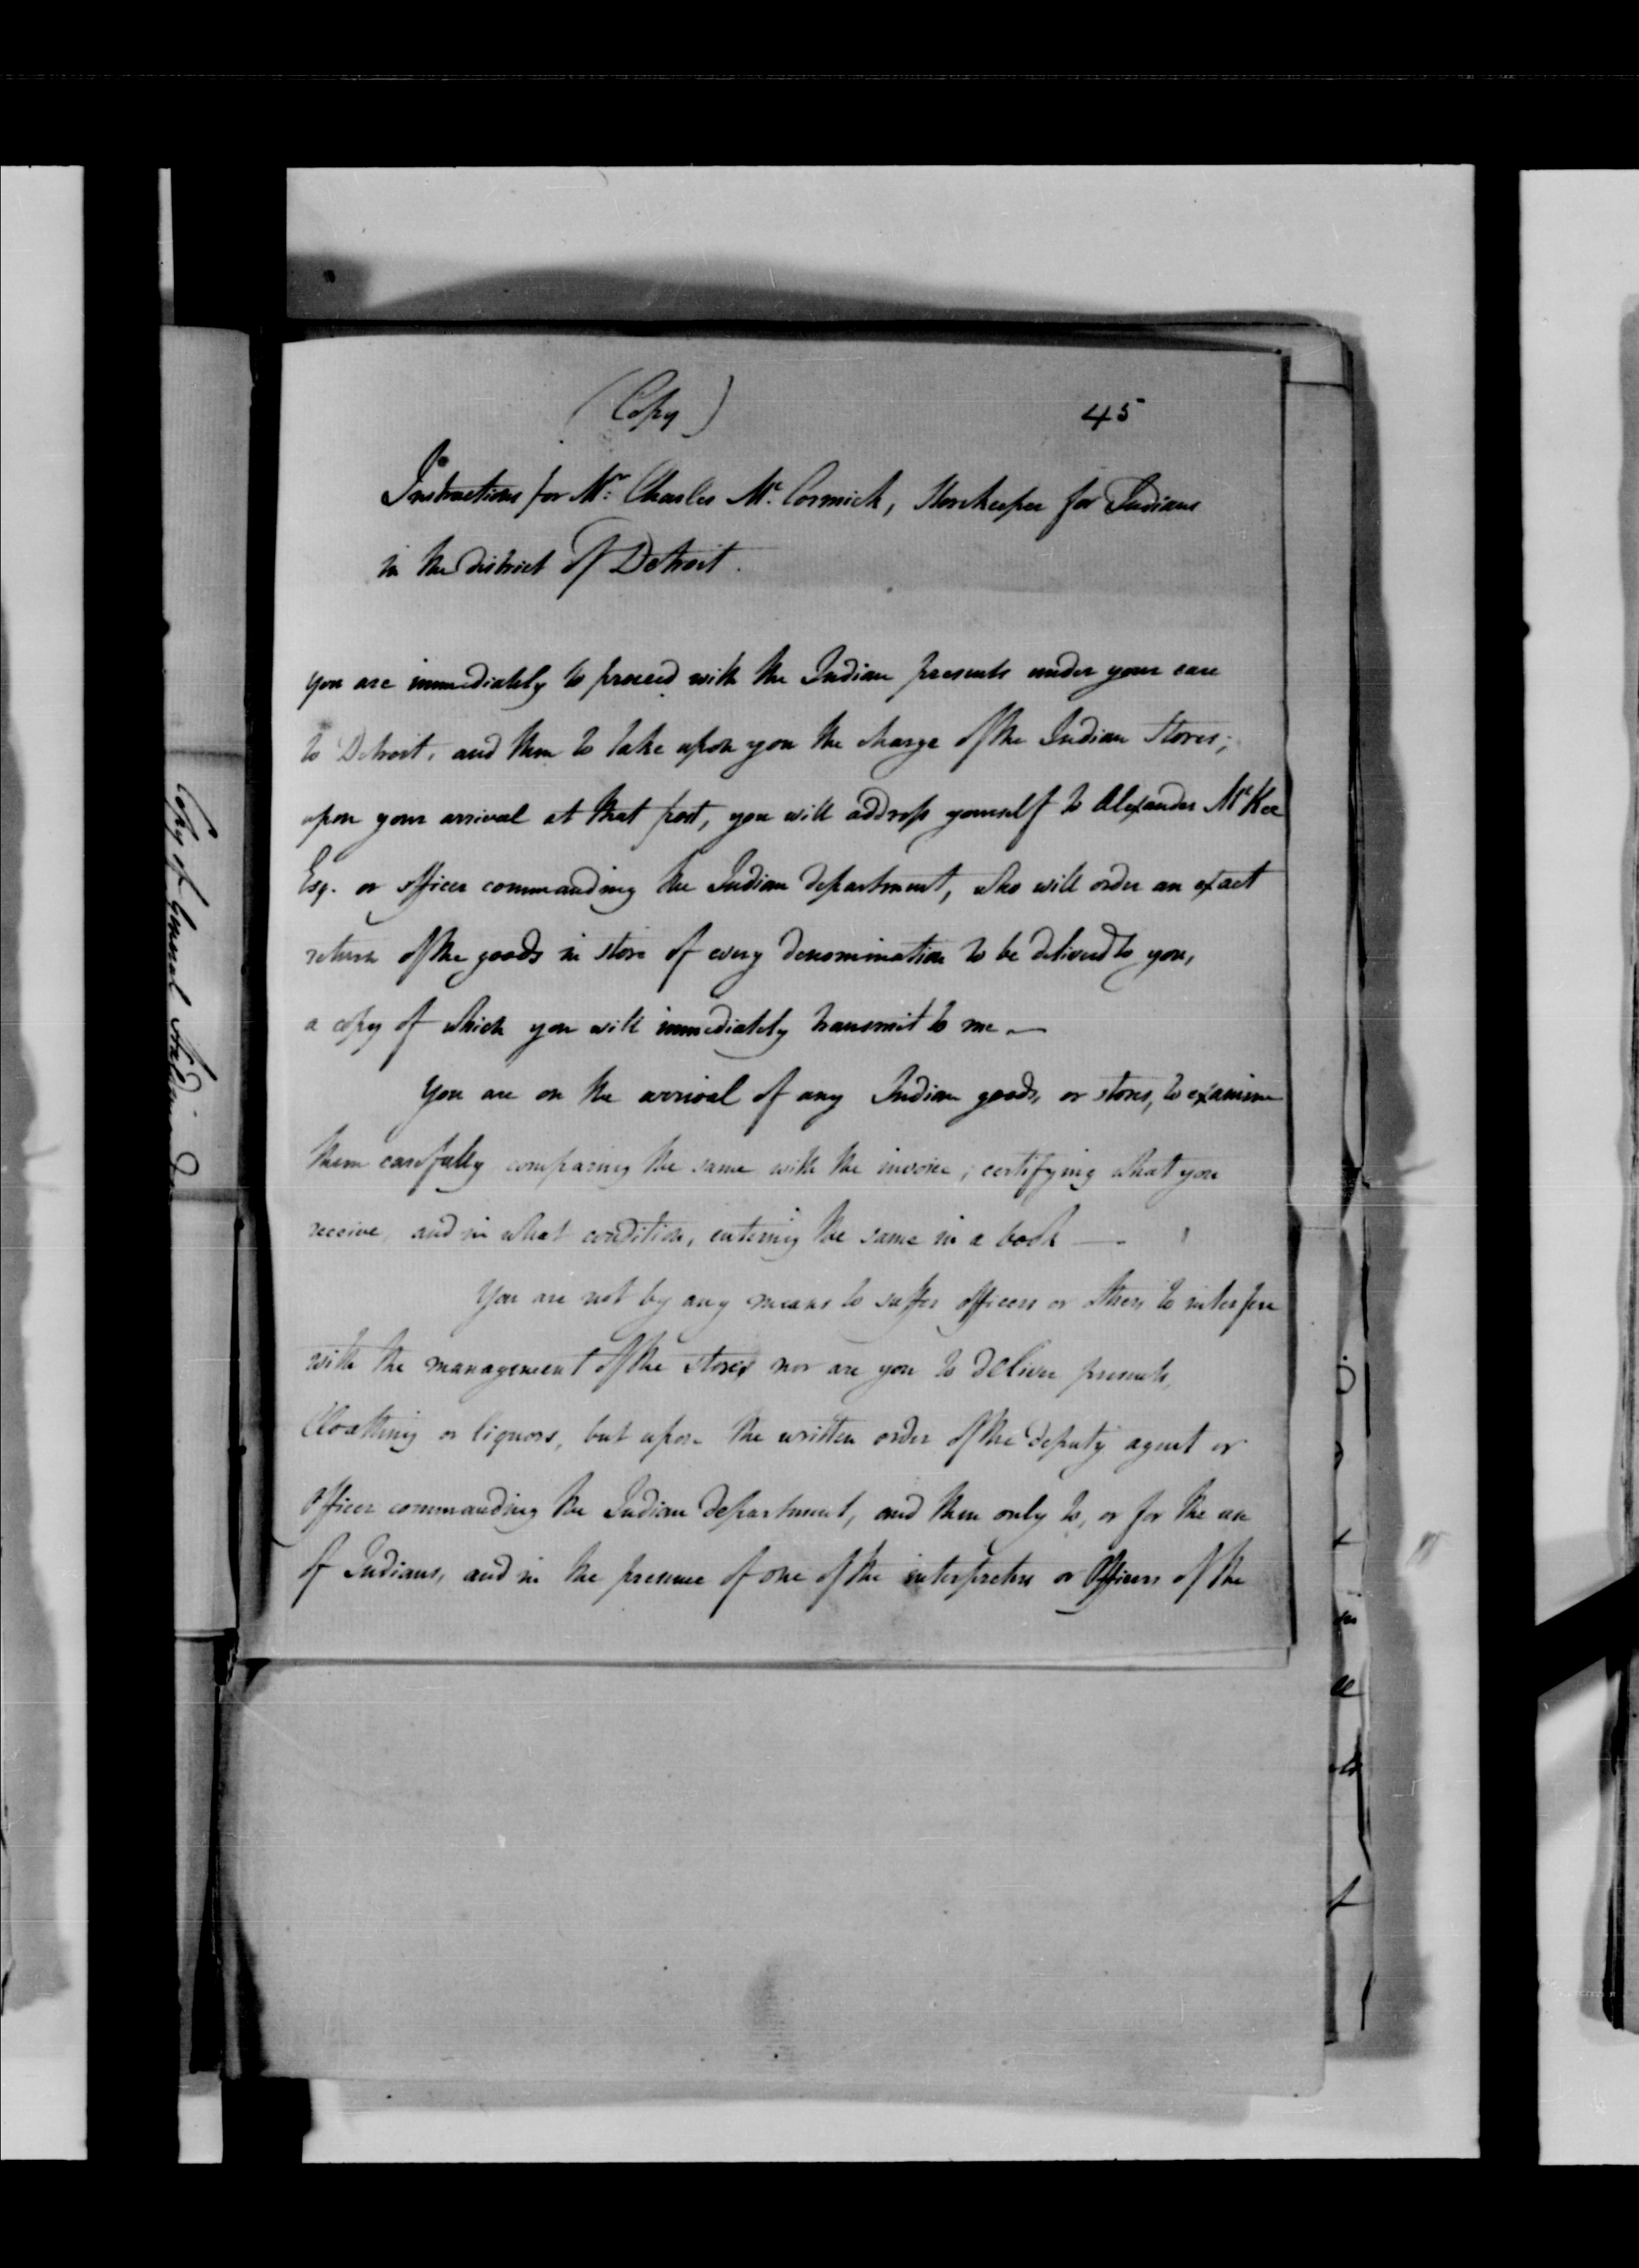 (Copy)
45
Instructions for Mr. Charles Mc. Cormick, Storekeeper for Indians
in the district of Detroit.
you are immediately to proceed with the Indian presents under your care
to Detroit, and then to take upon you the charge of the Indian Stores;
upon your arrival at that post, you will address yourself to Alexander McKee
Esq. or officer commanding the Indian department, who will order an exact
return of the goods in store of every denomination to be delivered to you,
a copy of which you will immediately transmit to me —
You are on the arrival of any Indian goods, or stores, to examine
them carefully comparing the same with the invoice, certifying what you
receive, and in what condition, entering the same in a book —
You are not by any means to suffer officers or others to interfere
with the management of the stores nor are you to deliver presents,
Cloathing or liquors, but upon the written order of the deputy agent or
Officer commanding the Indian department, and then only to, or for the use
of Indians, and in the presence of one of the interpreters or Officers of the
Copy of General Haldimand's